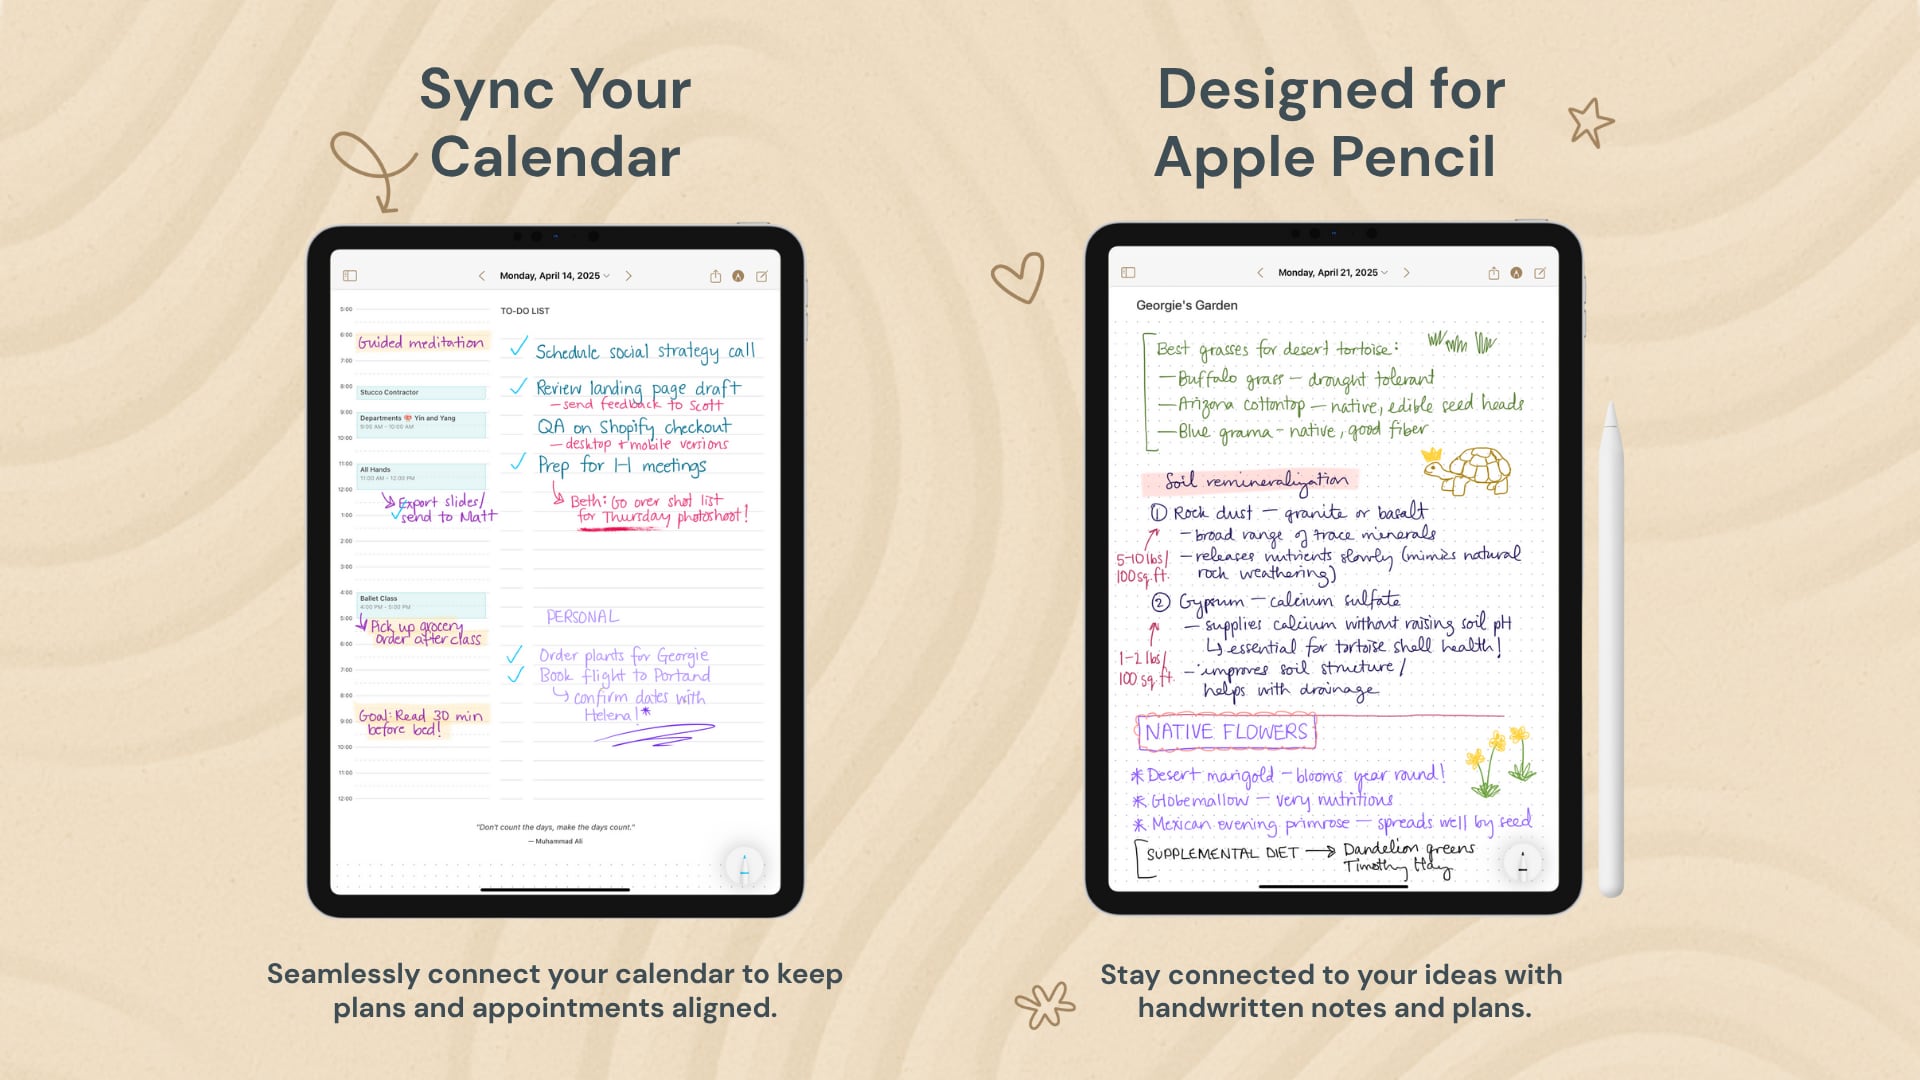 Sync Your
Calendar
Monday, April 14, 2025
5:00
6:00
Guided meditation
7:00
8:00
Stucco Contractor
9:00
Departments 💝 Yin and Yang
9:00 AM - 10:00 AM
10:00
11:00
All Hands
11:00 AM - 12:00 PM
12:00
Export slides/
1:00
send to Matt
2:00
3:00
4:00
Ballet Class
4:00 PM - 5:00 PM
5:00
Pick up grocery
order after class
6:00
7:00
8:00
Goal: Read 30 min
9:00
before bed!
10:00
11:00
12:00
TO-DO LIST
Schedule social strategy call
Review landing page draft
— send feedback to Scott
QA on Shopify checkout
— desktop + mobile versions
Prep for 1-1 meetings
Beth: Go over shot list
for Thursday photoshoot!
PERSONAL
Order plants for Georgie
Book flight to Portand
confirm dates with
Helena!*
"Don't count the days, make the days count."
— Muhammad Ali
Seamlessly connect your calendar to keep
plans and appointments aligned.
Designed for
Apple Pencil
Monday, April 21, 2025
Georgie's Garden
Best grasses for desert tortoise:
— Buffalo grass — drought tolerant
— Arizona cottontop — native, edible seed heads
— Blue grama - native, good fiber
Soil remineralization
① Rock dust — granite or basalt
— broad range of trace minerals
5-10 lbs/
100 sq. ft.
— releases nutrients slowly (mimics natural
rock weathering)
② Gypsum — calcium sulfate
— supplies calcium without raising soil pH
↳ essential for tortoise shell health!
1-2 lbs/
100 sq. ft.
— improves soil structure/
helps with drainage
NATIVE FLOWERS
* Desert marigold — blooms year round!
* Globemallow — very nutritious
* Mexican evening primrose — spreads well by seed
SUPPLEMENTAL DIET → Dandelion greens
Timothy Hay
Stay connected to your ideas with
handwritten notes and plans.